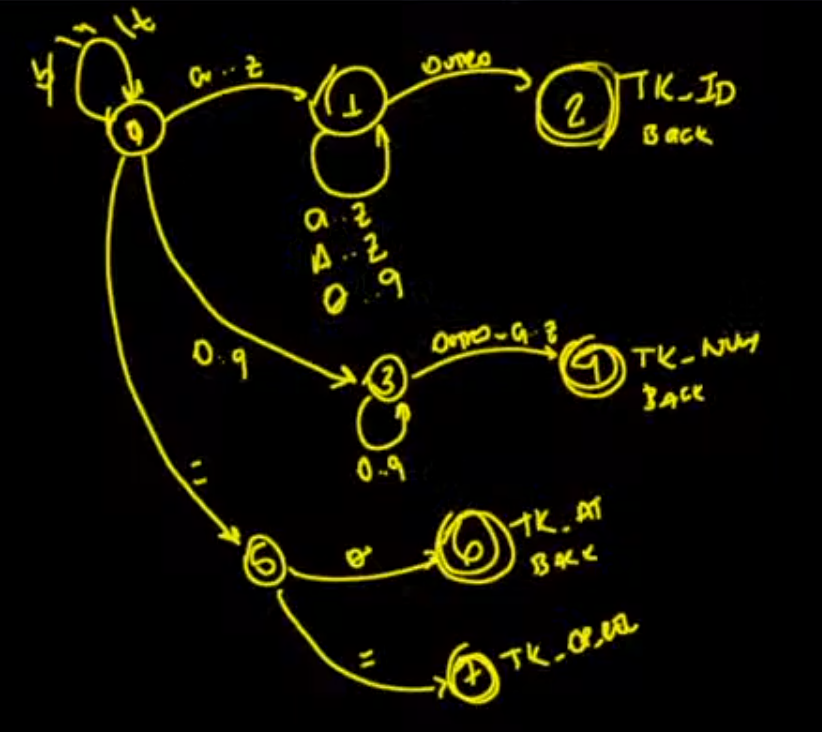 \n \t
a..z
1
OUTRO
2
TK_ID
Back
0
a..z
A..Z
0..9
0..9
3
OUTRO - a..z
4
TK_NUM
BACK
0..9
=
5
6
TK_AT
BACK
=
7